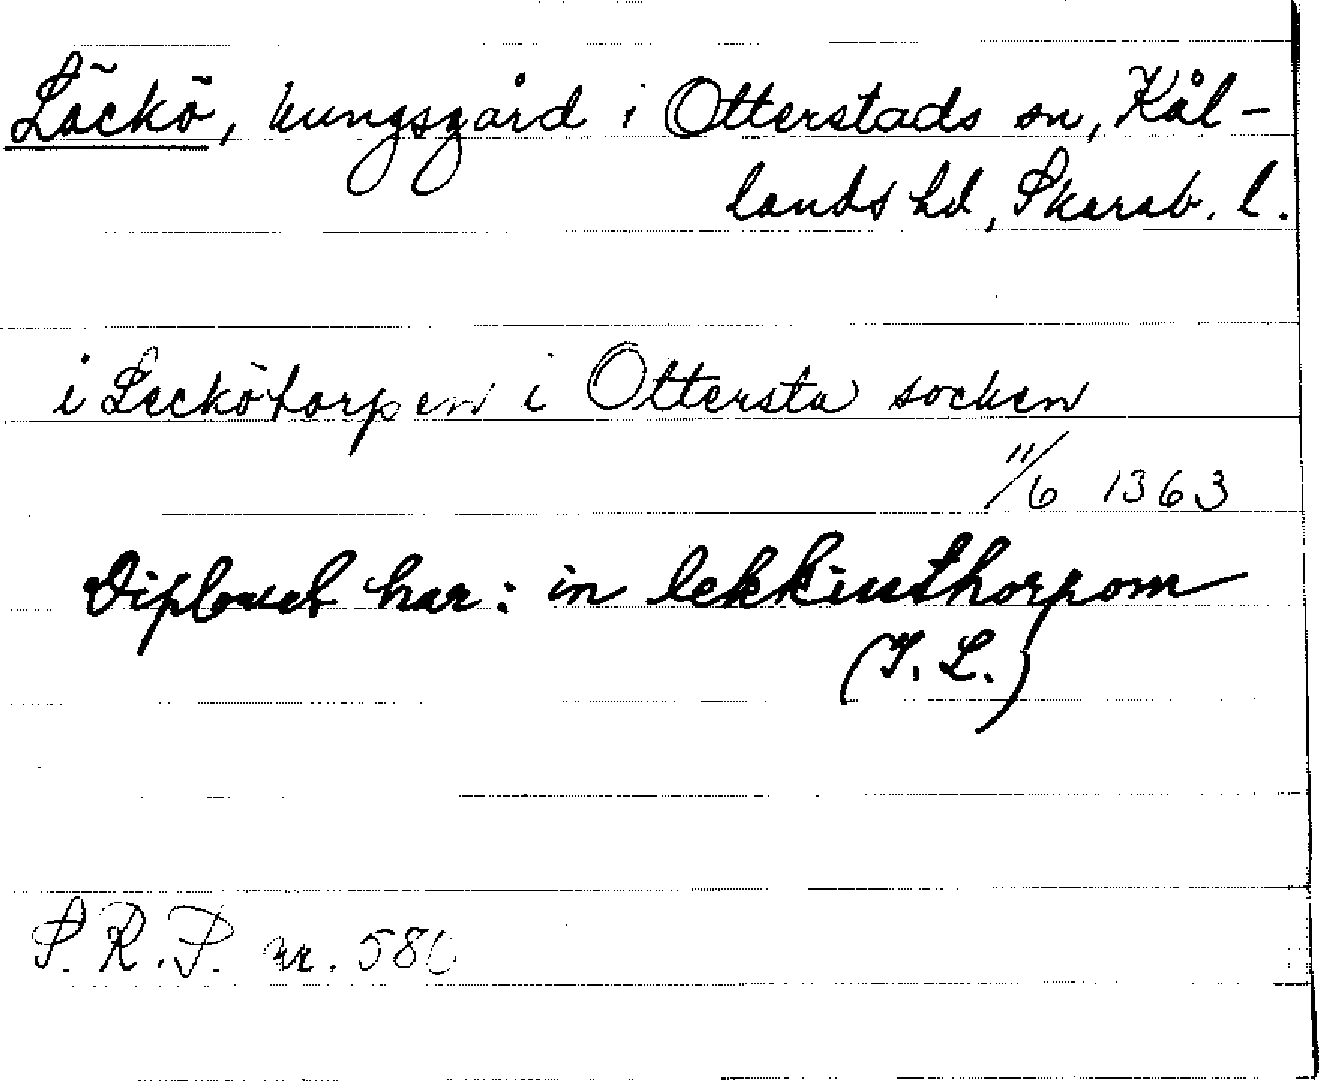 Läckö, kungsgård i Otterstads sn, Kål-
lands hd, Skarab. l.
i Leckötorpen i Ottersta socken
11/6 1363
Diplomet har: in lekkiusthorpom
(I. L.)
S. R. P. nr. 586